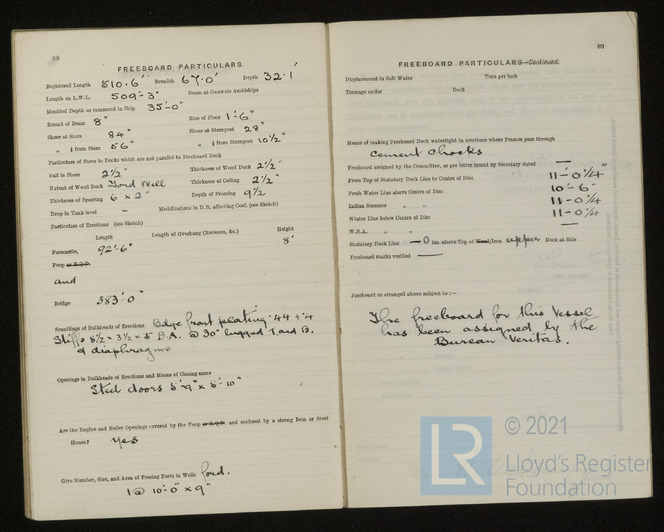 88
FREEBOARD PARTICULARS.
Registered Length 510·6' Breadth 67·0' Depth 32·1'
Length on L.W.L. 509'-3" Beam at Gunwale Amidships
Moulded Depth as measured in Ship 35'-0"
Round of Beam 8" Rise of Floor 1'-6"
Sheer at Stem 84" Sheer at Sternpost 28"
" ⅛ from Stem 56" " ⅛ from Sternpost 10½"
Particulars of Sheer in Decks which are not parallel to Freeboard Deck
Fall in Sheer 2½" Thickness of Wood Deck 2½"
Extent of Wood Deck Ford Well Thickness of Ceiling 2½"
Thickness of Sparring 6 x 2" Depth of Pressing 9½
Drop in Tank level – Modifications in D.B. affecting Coef. (see Sketch)
Particulars of Erections (see Sketch)
Length Length of Overhang (Recesses, &c.) Height
Forecastle, 92'-6" 8'
Poop or R.Q.D.
and
Bridge 383'-0"
Scantlings of Bulkheads of Erections Bdge front plating ·44 + ·4
Stiffs 8½ x 3½ x ·5 B.A. @ 30" lugged T and B.
& diaphragms
Openings in Bulkheads of Erections and Means of Closing same
Steel doors 5'-9" x 5'-10"
Are the Engine and Boiler Openings covered by the Poop or R.Q.D. and enclosed by a strong Iron or Steel
House? Yes
Give Number, Size, and Area of Freeing Ports in Wells ford.
1 @ 10'-0" x 9"
89
FREEBOARD PARTICULARS—Continued.
Displacement in Salt Water Tons per Inch
Tonnage under Deck
Means of making Freeboard Deck watertight in erections where Frames pass through
Cement Chocks
Freeboard assigned by the Committee, as per letter issued by Secretary dated —
From Top of Statutory Deck Line to Centre of Disc 11-0¼"
Fresh Water Line above Centre of Disc 10-6
Indian Summer " " 11-0¼
Winter Line below Centre of Disc 11-0¼
W.N.A. " " —
Statutory Deck Line —0 ins. above Top of Wood/Iron upper Deck at Side
Freeboard Marks verified —
Freeboard as arranged above subject to:—
The freeboard for this Vessel
has been assigned by the
Bureau Veritas.
LR © 2021
Lloyd's Register
Foundation